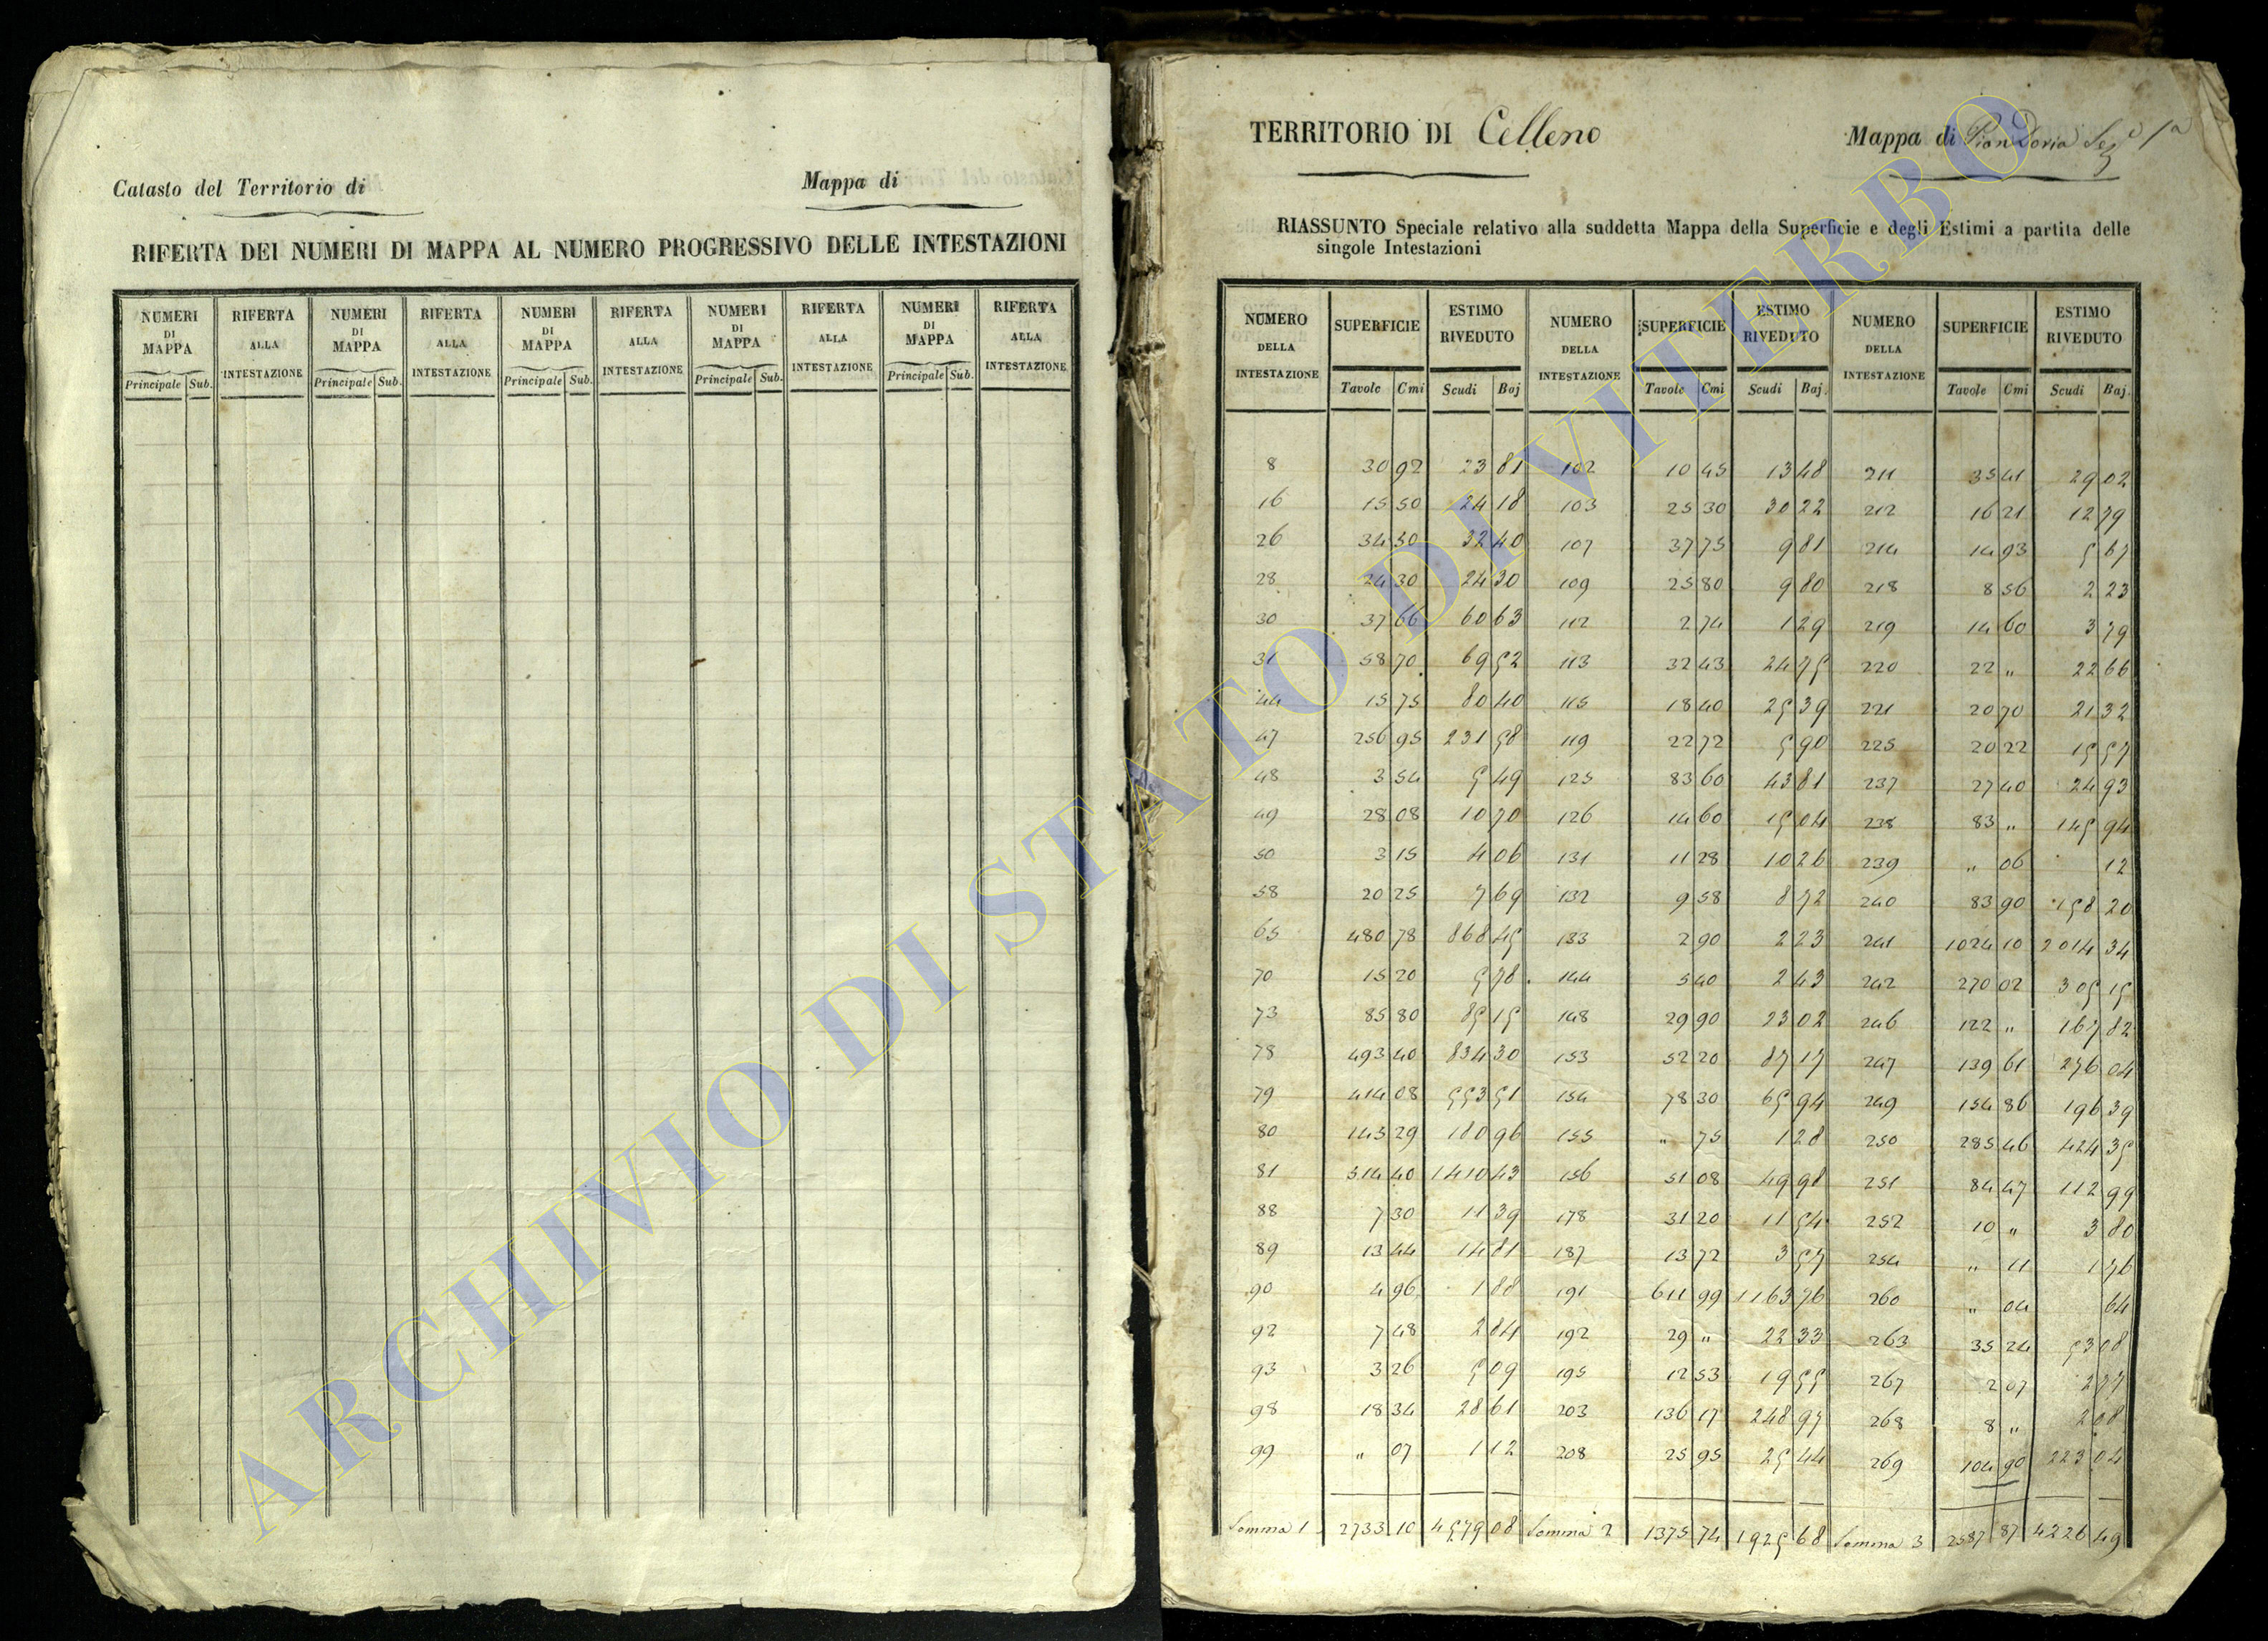 Catasto del Territorio di
Mappa di
RIFERTA DEI NUMERI DI MAPPA AL NUMERO PROGRESSIVO DELLE INTESTAZIONI
NUMERI DI MAPPA RIFERTA ALLA INTESTAZIONE NUMERI DI MAPPA RIFERTA ALLA INTESTAZIONE NUMERI DI MAPPA RIFERTA ALLA INTESTAZIONE NUMERI DI MAPPA RIFERTA ALLA INTESTAZIONE NUMERI DI MAPPA RIFERTA ALLA INTESTAZIONE
Principale Sub. Principale Sub. Principale Sub. Principale Sub. Principale Sub.
TERRITORIO DI Celleno
Mappa di Pian Doria Sez.e 1a
RIASSUNTO Speciale relativo alla suddetta Mappa della Superficie e degli Estimi a partita delle
singole Intestazioni
NUMERO DELLA INTESTAZIONE SUPERFICIE ESTIMO RIVEDUTO NUMERO DELLA INTESTAZIONE SUPERFICIE ESTIMO RIVEDUTO NUMERO DELLA INTESTAZIONE SUPERFICIE ESTIMO RIVEDUTO
Tavole Cmi Scudi Baj Tavole Cmi Scudi Baj. Tavole Cmi Scudi Baj.
8 30 92 23 81 102 10 45 13 48 211 35 41 29 02
16 15 50 24 18 103 25 30 30 22 212 16 21 12 79
26 34 50 32 40 107 37 75 9 81 214 14 93 5 67
28 24 30 24 30 109 25 80 9 80 218 8 56 2 23
30 37 66 60 63 112 2 74 1 29 219 14 60 3 79
31 58 70 69 52 113 32 43 24 75 220 22 " 22 66
44 15 75 80 40 115 18 40 25 39 221 20 70 21 32
47 256 95 231 58 119 22 72 5 90 225 20 22 15 57
48 3 54 5 49 125 83 60 43 81 237 27 40 24 93
49 28 08 10 70 126 14 60 15 04 238 83 " 145 94
50 3 15 4 06 131 11 28 10 26 239 " 06 12
58 20 25 7 69 132 9 58 8 72 240 83 90 158 20
65 480 78 868 45 133 2 90 2 23 241 1024 10 2014 34
70 15 20 5 78 144 5 40 2 43 242 270 02 305 15
73 85 80 85 15 148 29 90 23 02 246 122 " 167 82
78 493 40 834 30 153 52 20 87 17 247 139 61 276 04
79 414 08 553 51 154 78 30 65 94 249 154 86 196 39
80 143 29 180 96 155 " 75 1 28 250 285 46 424 35
81 514 40 1410 43 156 51 08 49 98 251 84 47 112 99
88 7 30 11 39 178 31 20 11 54 252 10 " 3 80
89 13 44 14 81 187 13 72 3 57 254 " 11 1 76
90 4 96 1 88 191 611 99 1163 76 260 " 04 64
92 7 48 2 84 192 29 " 22 33 263 35 24 53 08
93 3 26 5 09 195 12 53 19 55 267 2 07 2 77
98 18 34 28 61 203 136 17 248 97 268 8 " 2 08
99 " 07 1 12 208 25 95 25 44 269 104 90 223 04
Somma 1 2733 10 4579 08 Somma 2 1375 74 1925 68 Somma 3 2587 87 4226 49
ARCHIVIO DI STATO DI VITERBO